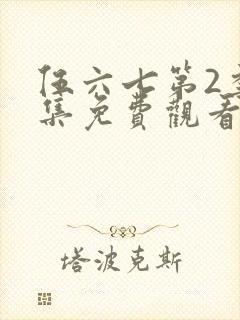 伍六七第2季
集免費觀看
塔波克斯